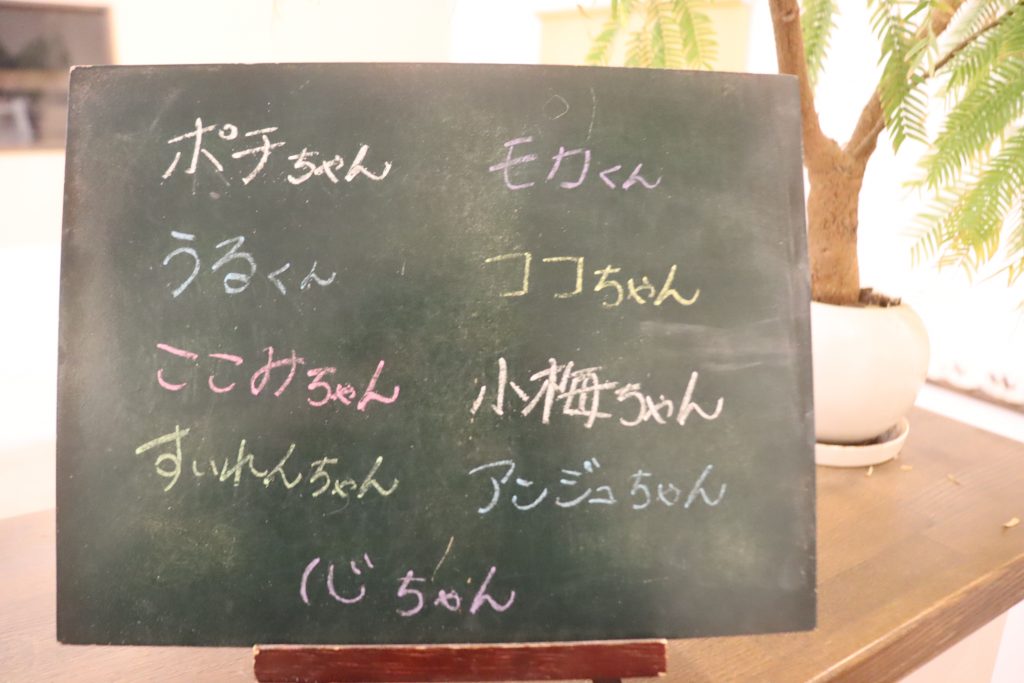 ポチちゃん
モカくん
うるくん
ココちゃん
ここみちゃん
小梅ちゃん
すいれんちゃん
アンジュちゃん
くじちゃん